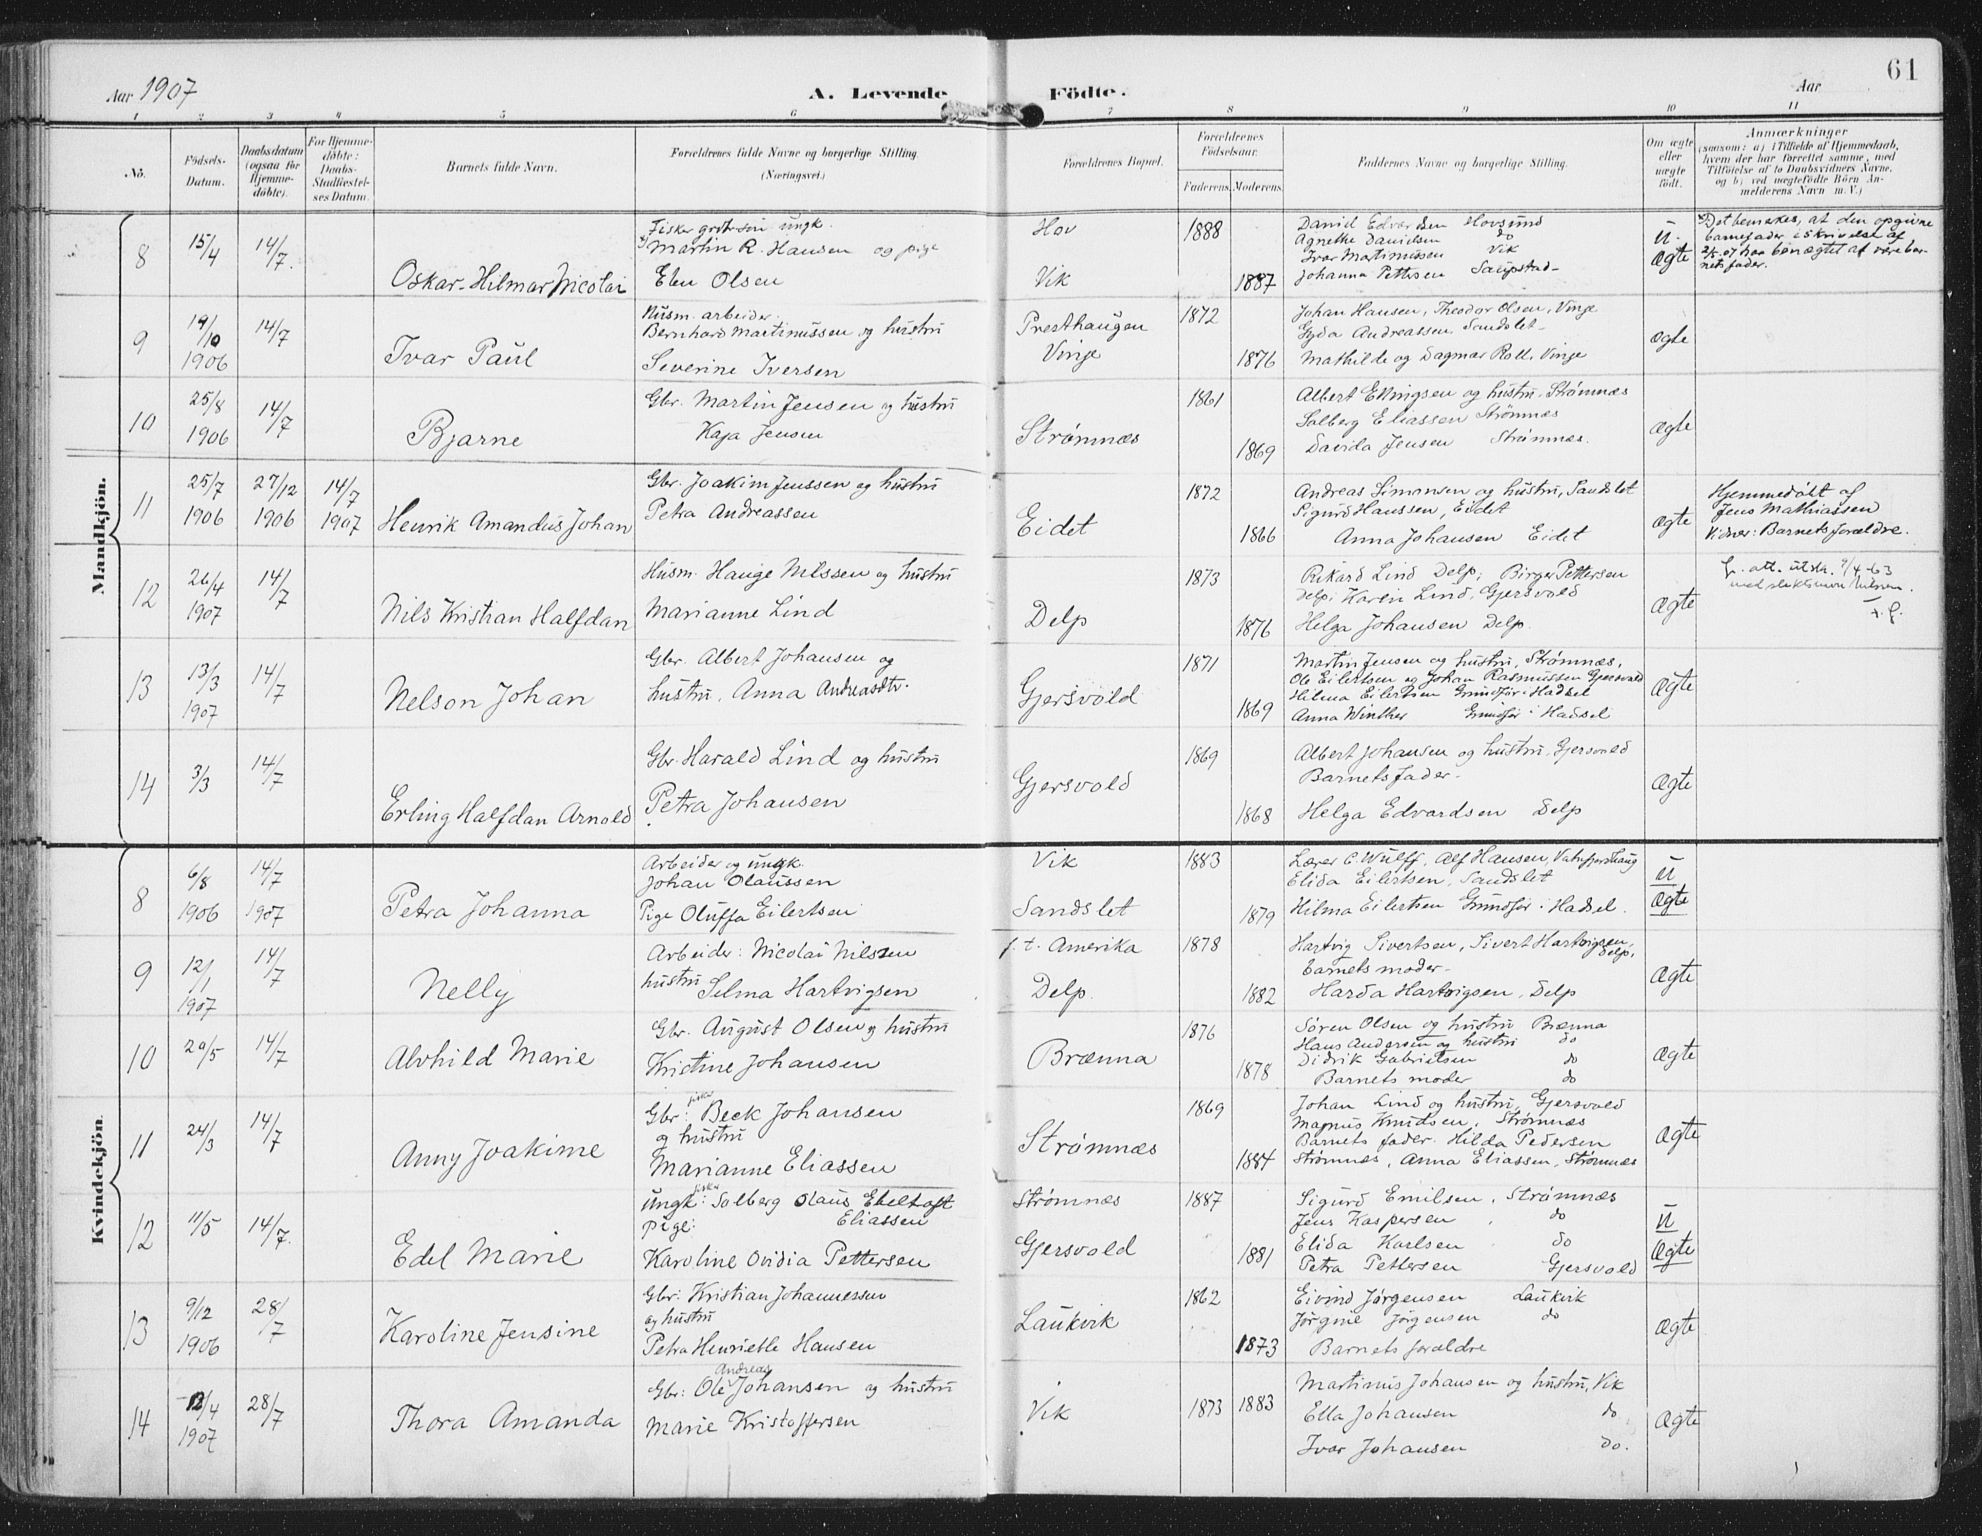 Aar 1907
A. Levende Födte.
Aar
61
1 2 3 4 5 6 7 8 9 10 11
No.
Födsels-Datum.
Daabsdatum (ogsaa for Hjemmedöbte).
For Hjemmedöbte: Daabs-Stadfæstelses Datum.
Barnets fulde Navn.
Forældrenes fulde Navne og borgerlige Stilling. (Næringsvei.)
Forældrenes Bopæl.
Forældrenes Födselsaar.
Faderens. Moderens.
Faddernes Navne og borgerlige Stilling.
Om ægte eller uægte födt.
Anmærkninger
(saasom: a) i Tilfælde af Hjemmedaab,
hvem der har forrettet samme, med
Tilföielse af to Daabsvidners Navne,
og b) ved uægtefödte Börn Anmelderens Navn m. V.)
Mandkjön.
8 15/4 14/7. Oskar Hilmar Nicolai
Fisker ungk.
Martin R. Hansen og pige
Elen Olsen
Hov
Vik
1888
1887
Daniel Edvardsen Hovsund
Agnethe Danielsen do
Ivar Martinussen Vik
Johanna Pettersen Saupstad
u.
ægte
Det bemerkes, at den opgivne
barnefader i skrivelse af
2/5 07 har benægtet at være barnets fader.
9 19/10 1906 14/7 Ivar Paul
Husm. arbeider.
Bernhard Martinussen og hustru
Severine Iversen
Presthaugen
Vinje
1872
1876
Johan Hansen, Theodor Olsen, Vinje
Gyda Andreassen Sandslet
Mathilde og Dagmar Roll, Vinje
ægte
10 25/8 1906 14/7 Bjarne
Gbr. Martin Jensen og hustru
Kaja Jensen
Strømnæs
1861
1869
Albert Ellingsen og hustru, Strømnæs
Solberg Eliassen Strømnæs
Davida Jensen Strømnæs.
ægte
11 25/7 1906 27/12 1906 14/7 1907 Henrik Amandus Johan
Gbr. Joakim Jenssen og hustru
Petra Andreassen
Eidet
1872
1866
Andreas Simonsen og hustru, Sandslet
Sigurd Hanssen, Eidet
Anna Johansen Eidet
ægte
Hjemmedøbt af
Jens Mathiassen
Vidner: Barnets forældre.
12 26/4 1907 14/7 Nils Kristian Halfdan
Husm. Hauge Nilssen og hustru
Marianne Lind
Delp
1873
1876
Rikard Lind Delp, Birger Pettersen
Delp, Karen Lind, Gjersvold
Helga Johansen Delp
ægte
f. att. utst. 9/4-63
13 13/3 1907 14/7 Nelson Johan
Gbr. Albert Johansen og
hustru, Anna Andreasdtr.
Gjersvold
1871
1869
Martin Jensen og hustru, Strømnæs,
Ole Eilertsen og Johan Rasmussen Gjersvold
Hilma Eilertsen Grundfør i Hadsel
Anna Winther Grundfør i Hadsel
ægte
14 3/3 14/7 Erling Halfdan Arnold
Gbr. Harald Lind og hustru
Petra Johansen
Gjersvold
1869
1868
Albert Johansen og hustru, Gjersvold
Barnets fader
Helga Edvardsen Delp
ægte
Kvindekjön.
8 6/8 1906 14/7 1907 Petra Johanna
Arbeider og ungk.
Johan Olaussen
Pige Oluffa Eilertsen
Vik
Sandslet
1883
1879
Lærer C. Wulff, Alf Hansen, Vatnfjordhaug
Elida Eilertsen, Sandslet
Hilma Eilertsen Grundfør i Hadsel.
u
ægte
9 12/1 1907 14/7 Nelly
Arbeider: Nicolai Nilssen
hustru Selma Hartvigsen
f. t. Amerika
Delp.
1878
1882
Hartvig Sivertsen, Sivert Hartvigsen, Delp,
Barnets moder
Harda Hartvigsen, Delp
ægte
10 29/5 14/7 Alvhild Marie
Gbr. August Olsen og hustru
Kristine Johansen
Brænna
1876
1878
Søren Olsen og hustru Brænna
Hans Andersen og hustru do
Didrik Gabrielsen do
Barnets moder do
ægte
11 24/3 14/7 Anny Joakime
Gbr: fisker Beck Johansen
og hustru
Marianne Eliassen
Strømnæs
1869
1884
Johan Lind og hustru, Gjersvold
Magnus Knudsen, Strømnæs
Barnets fader. Hilda Pedersen
Strømnæs, Anna Eliassen, Strømnæs
ægte
12 11/5 14/7. Edel Marie
ungk: fisker Solberg Olaus Ebeltoft
pige: Eliassen
Karoline Ovidia Pettersen
Strømnæs
Gjersvold
1887
1881
Sigurd Emilsen, Strømnæs
Jens Kaspersen do
Elida Karlsen do
Petra Pettersen Gjersvold
u
ægte
13 9/12 1906 28/7 Karoline Jensine
Gbr: Kristian Johannessen
og hustru
Petra Henriette Hansen
Laukvik
1862
1873
Eivind Jørgensen Laukvik
Jørgine Jørgensen do
Barnets forældre
ægte
14 12/4 1907 28/7 Thora Amanda
Gbr: Ole Andreas Johansen og hustru
Marie Kristoffersen
Vik
1873 1883
Martinus Johansen og hustru, Vik
Ella Johansen do
Ivar Johansen do.
ægte